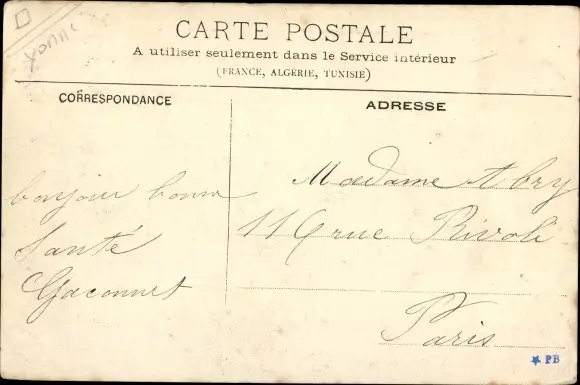 Yonne
CARTE POSTALE
A utiliser seulement dans le Service intérieur
(FRANCE, ALGÉRIE, TUNISIE)
CORRESPONDANCE
ADRESSE
bonjour bonne
Santé
Gaconnet
Madame Abry
119 rue Rivoli
Paris
PB